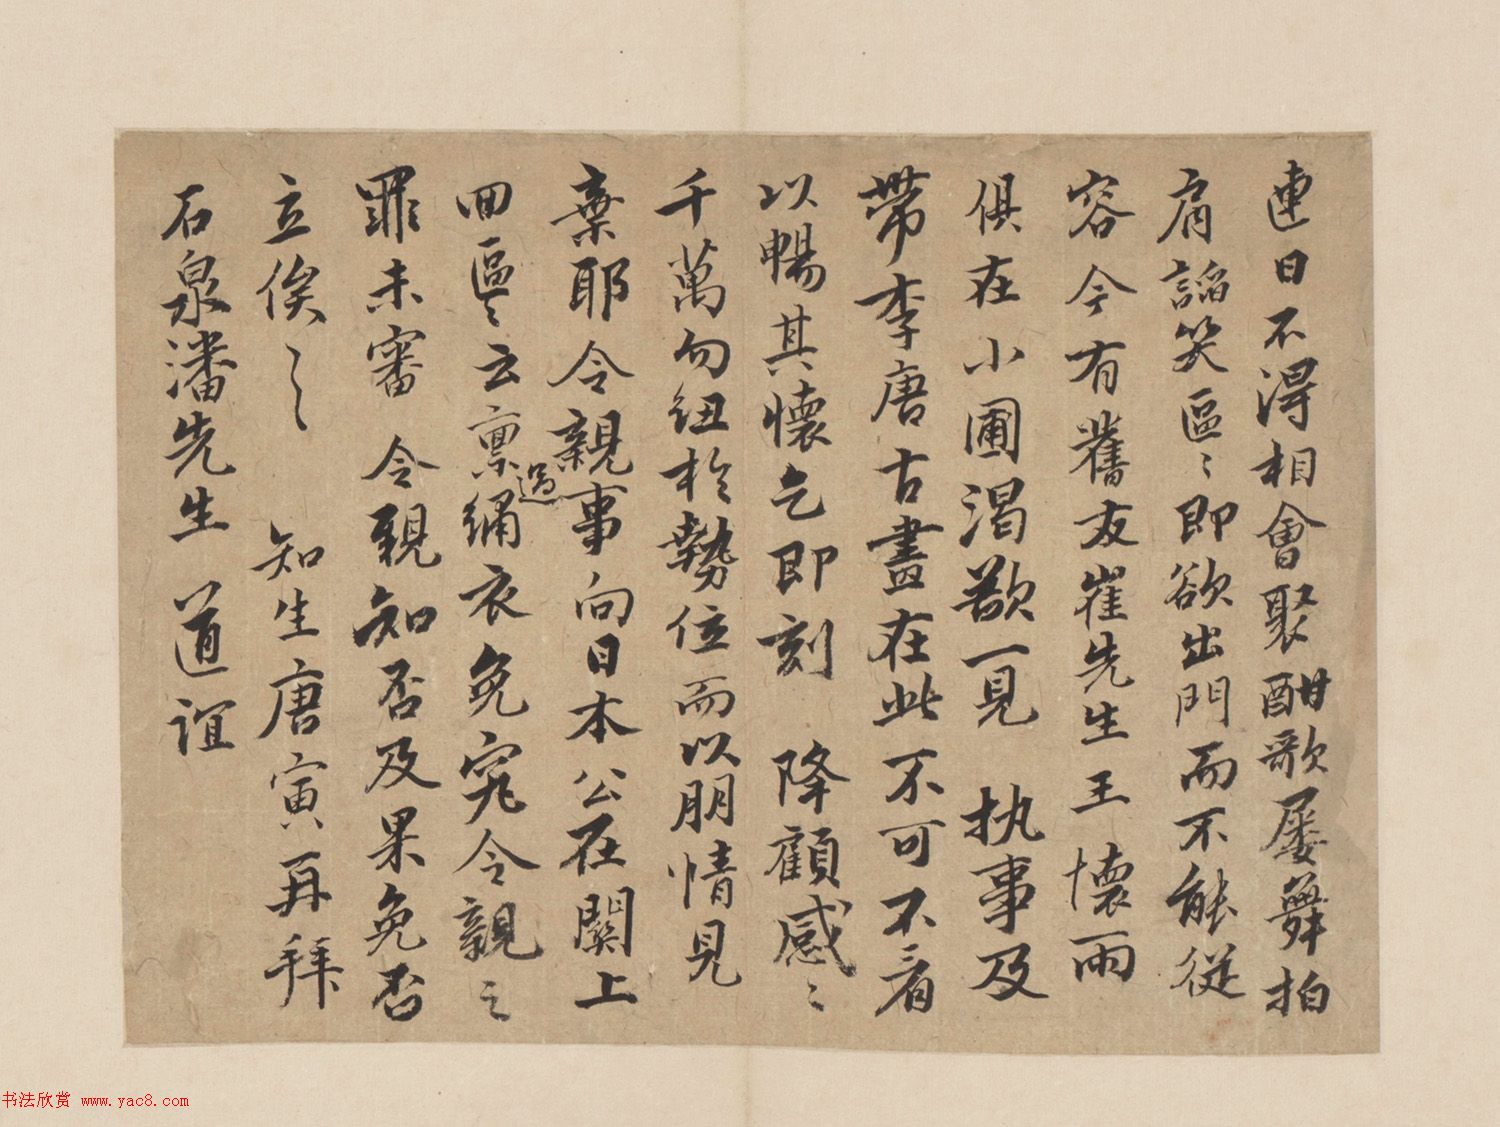 連日不得相會聚酣歌屡舞拍
肩謟笑區〻即欲出門而不能從
容今有舊友崔先生王懷雨
俱在小圃渴欲一見 执事及
帶李唐古畫在此不可不看
以暢其懷乞即刻 降顧感〻
千萬勿鈕於勢位而以朋情見
棄耶令親事向日本公在關上
回區〻云禀過繡衣免究令親之
罪未審 令親知否及果免否
立俟〻〻 知生唐寅再拜
石泉潘先生 道誼
书法欣赏 www.yac8.com